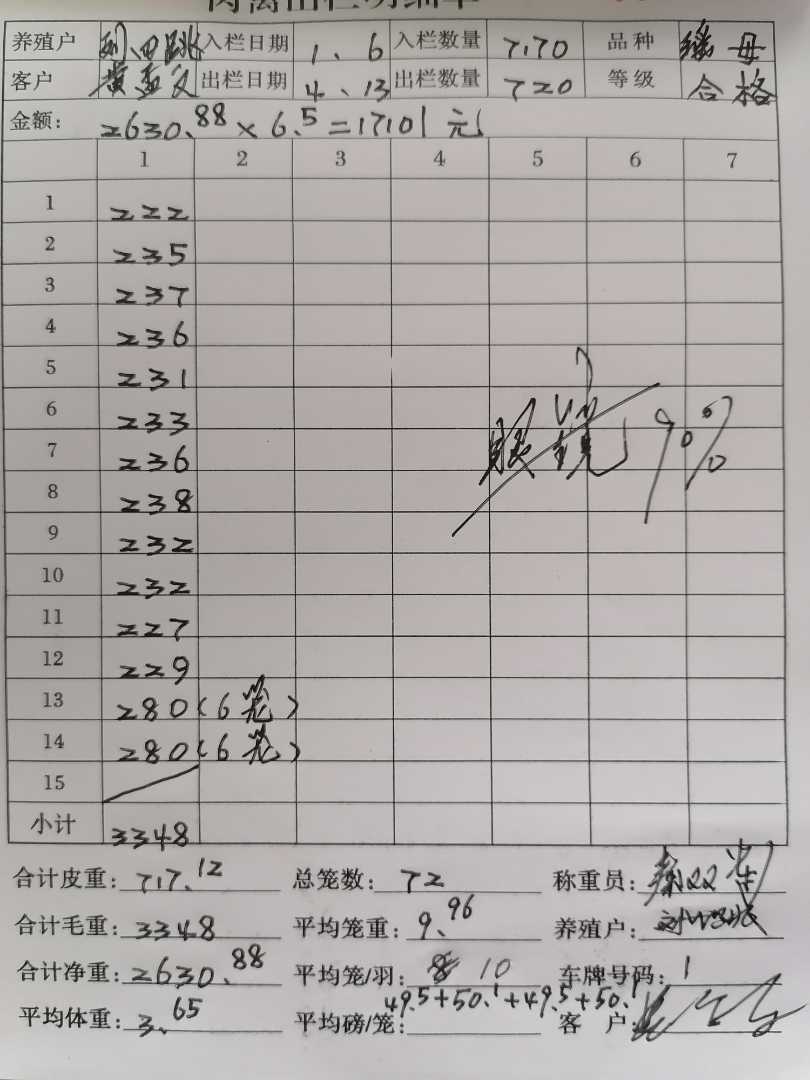 入栏日期 1、6 入栏数量 7,70 品种 继母
客户 出栏日期 4、13 出栏数量 720 等级 合格
金额: 2630.88×6.5=17101元
1 2 3 4 5 6 7
1 222
2 235
3 237
4 236
5 231
6 233
7 236
8 238
9 232
10 232
11 227
12 229
13 280(6笼)
14 280(6笼)
15
小计 3348
眼镜 90%
合计皮重: 717.12 总笼数: 72 称重员:
合计毛重: 3348 平均笼重: 9.96 养殖户:
合计净重: 2630.88 平均笼/羽: 10 车牌号码: 1
49.5+50.1+49.5+50.1
平均体重: 3.65 平均磅/笼: 客 户: